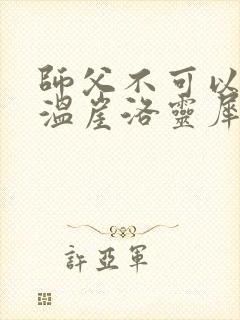 師父不可以
溫崖洛靈犀
許亞軍